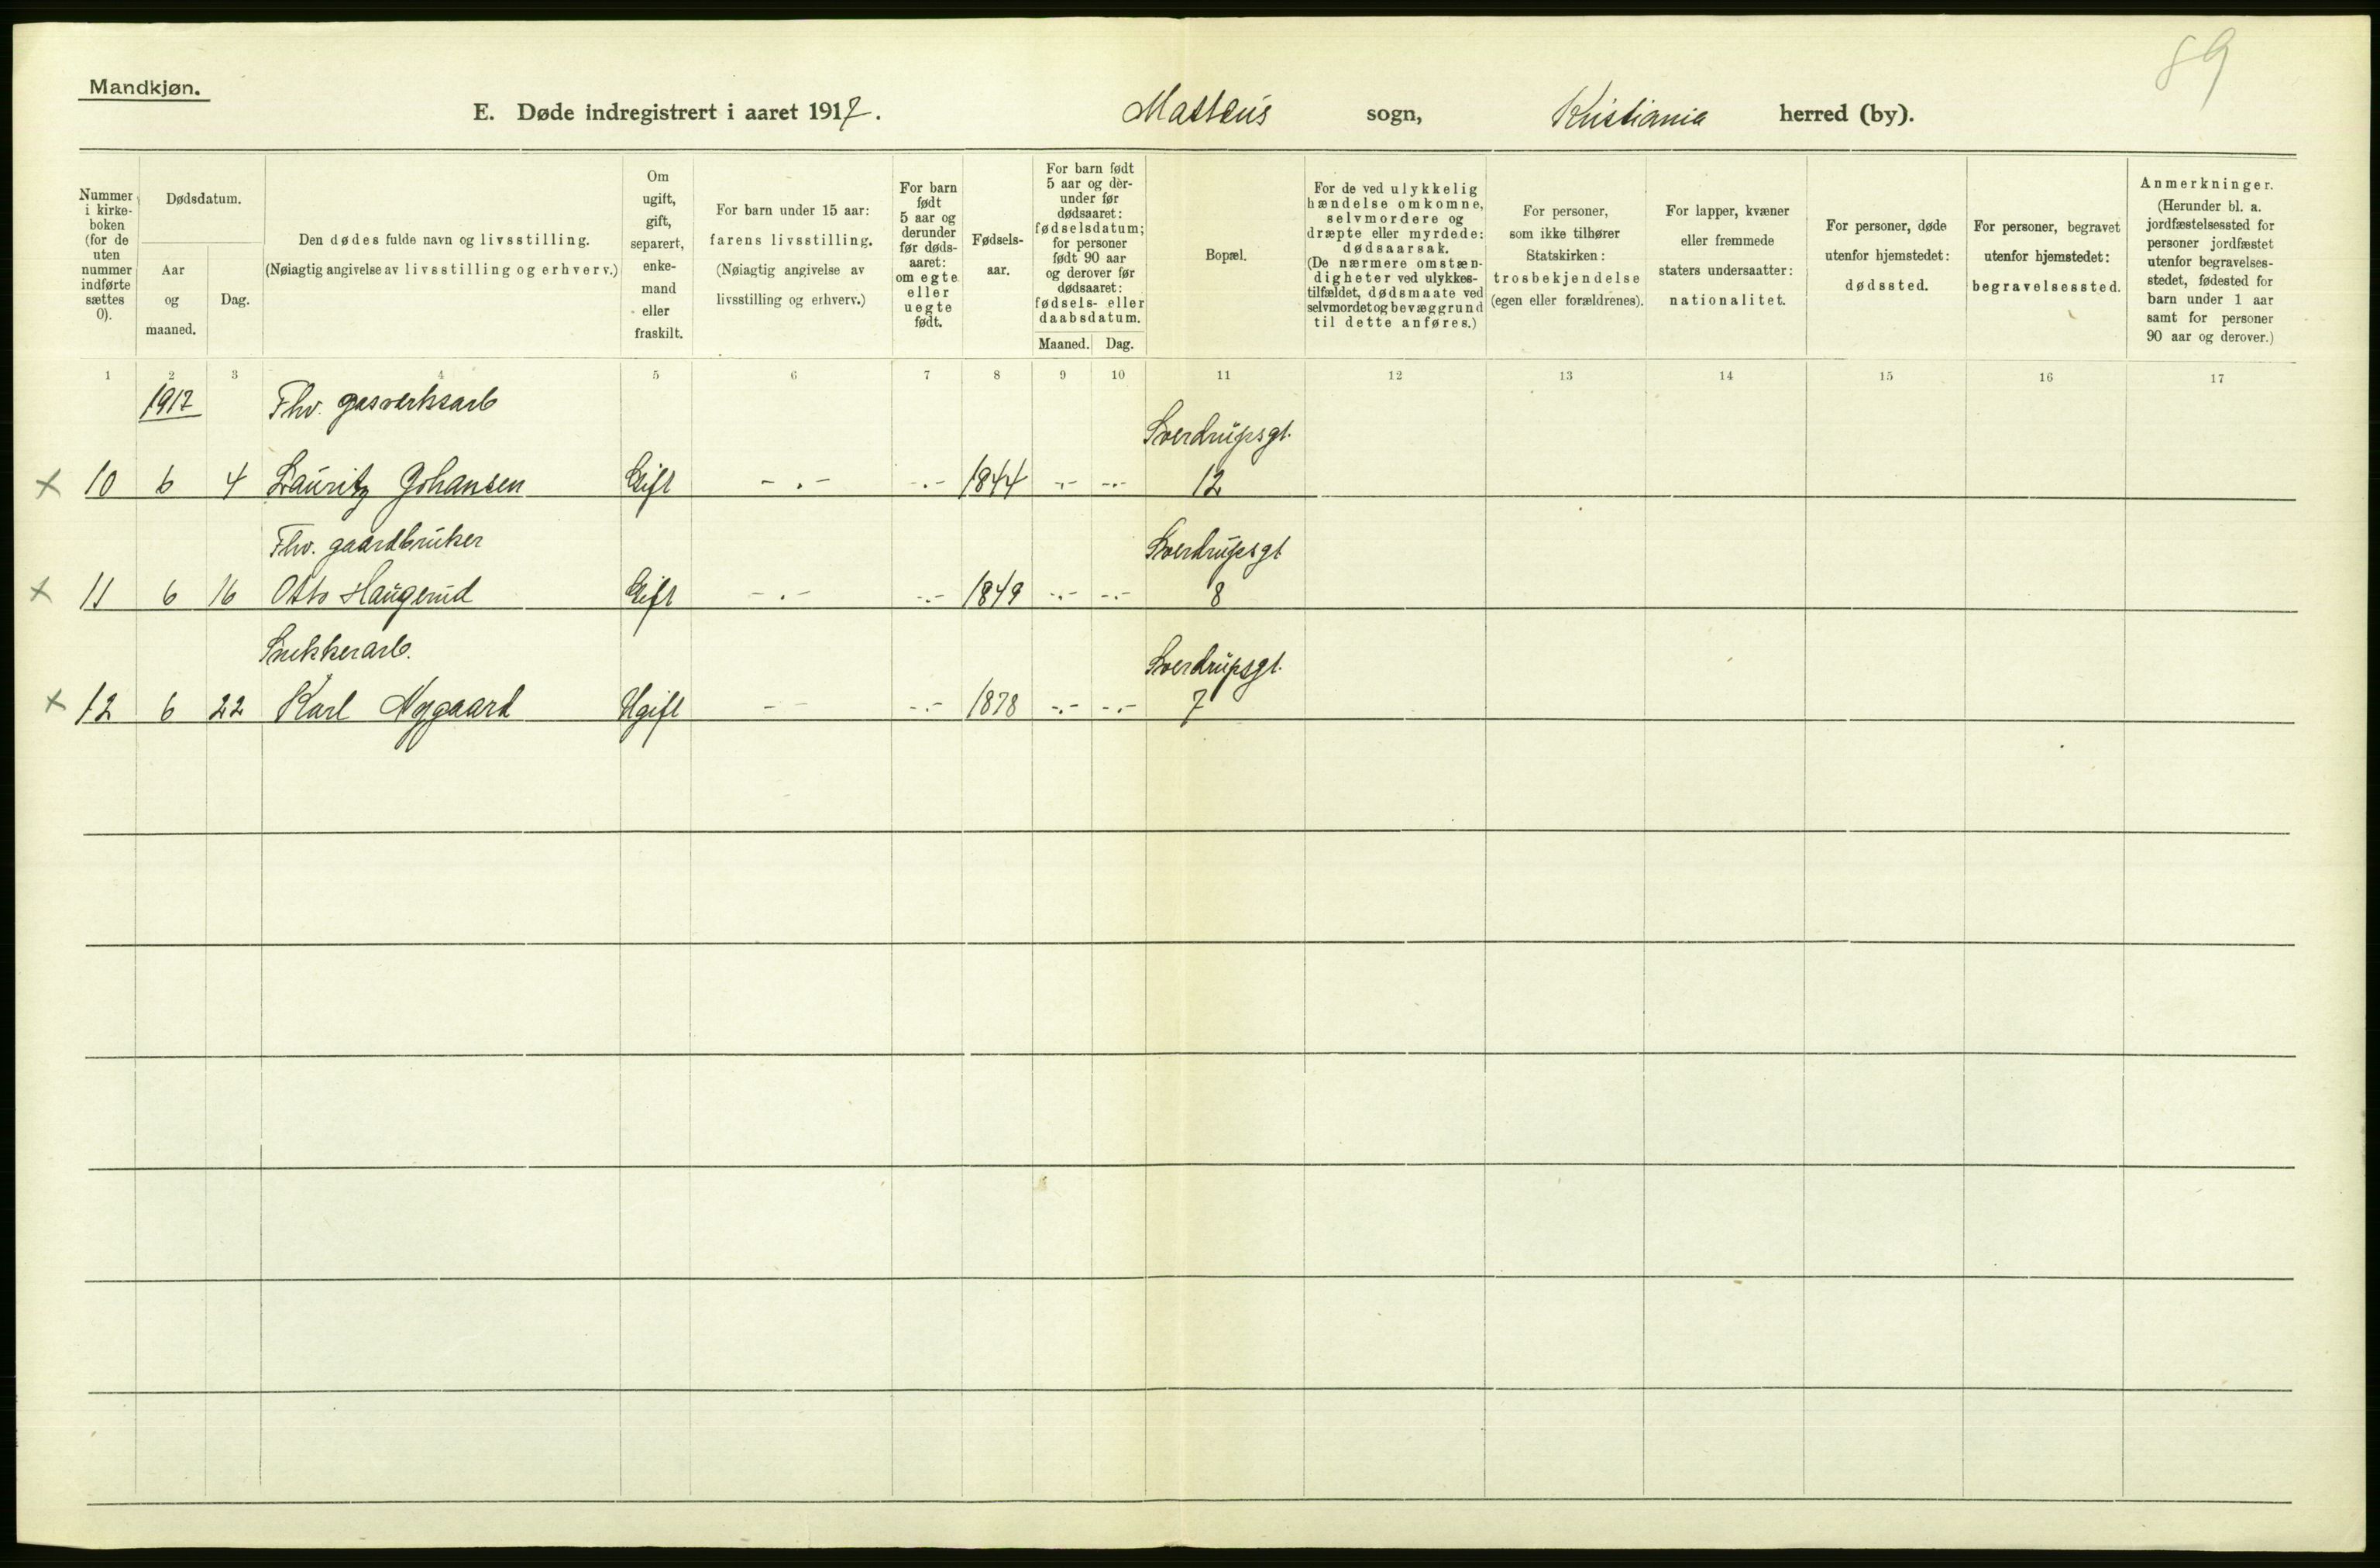 89
Mandkjøn.
E. Døde indregistrert i aaret 1917. Matteus sogn, Kristiania herred (by).
Nummer i kirke- boken (for de uten nummer indførte sættes 0).
Dødsdatum.
Aar og maaned.
Dag.
Den dødes fulde navn og livsstilling.
(Nøiagtig angivelse av livsstilling og erhverv.)
Om ugift, gift, separert, enke- mand eller fraskilt.
For barn under 15 aar:
farens livsstilling.
(Nøiagtig angivelse av livsstilling og erhverv.)
For barn født 5 aar og derunder før døds- aaret: om egte eller uegte født.
Fødsels- aar.
For barn født 5 aar og der- under før dødsaaret: fødselsdatum; for personer født 90 aar og derover før dødsaaret: fødsels- eller daabsdatum.
Maaned. Dag.
Bopæl.
For de ved ulykkelig hændelse omkomne, selvmordere og dræpte eller myrdede: dødsaarsak. (De nærmere omstæn- digheter ved ulykkes- tilfældet, dødsmaate ved selvmordet og bevæggrund til dette anføres.)
For personer, som ikke tilhører Statskirken: trosbekjendelse (egen eller forældrenes).
For lapper, kvæner eller fremmede staters undersaatter: nationalitet.
For personer, døde utenfor hjemstedet: dødssted.
For personer, begravet utenfor hjemstedet: begravelsessted.
Anmerkninger. (Herunder bl. a. jordfæstelsessted for personer jordfæstet utenfor begravelses- stedet, fødested for barn under 1 aar samt for personer 90 aar og derover.)
1 2 3 4 5 6 7 8 9 10 11 12 13 14 15 16 17
1917 Fhv. gasverksarb
Sverdrupsgt.
x 10 6 4 Lauritz Johansen Gift - . - - . - 1844 - . - - . - 12
Fhv. gaardbruker Sverdrupsgt
x 11 6 16 Otto Haugerud Gift - . - - . - 1849 - . - - . - 8
Snekkerarb. Sverdrupsgt.
x 12 6 22 Karl Nygaard Ugift - - - . - 1878 - . - - . - 7